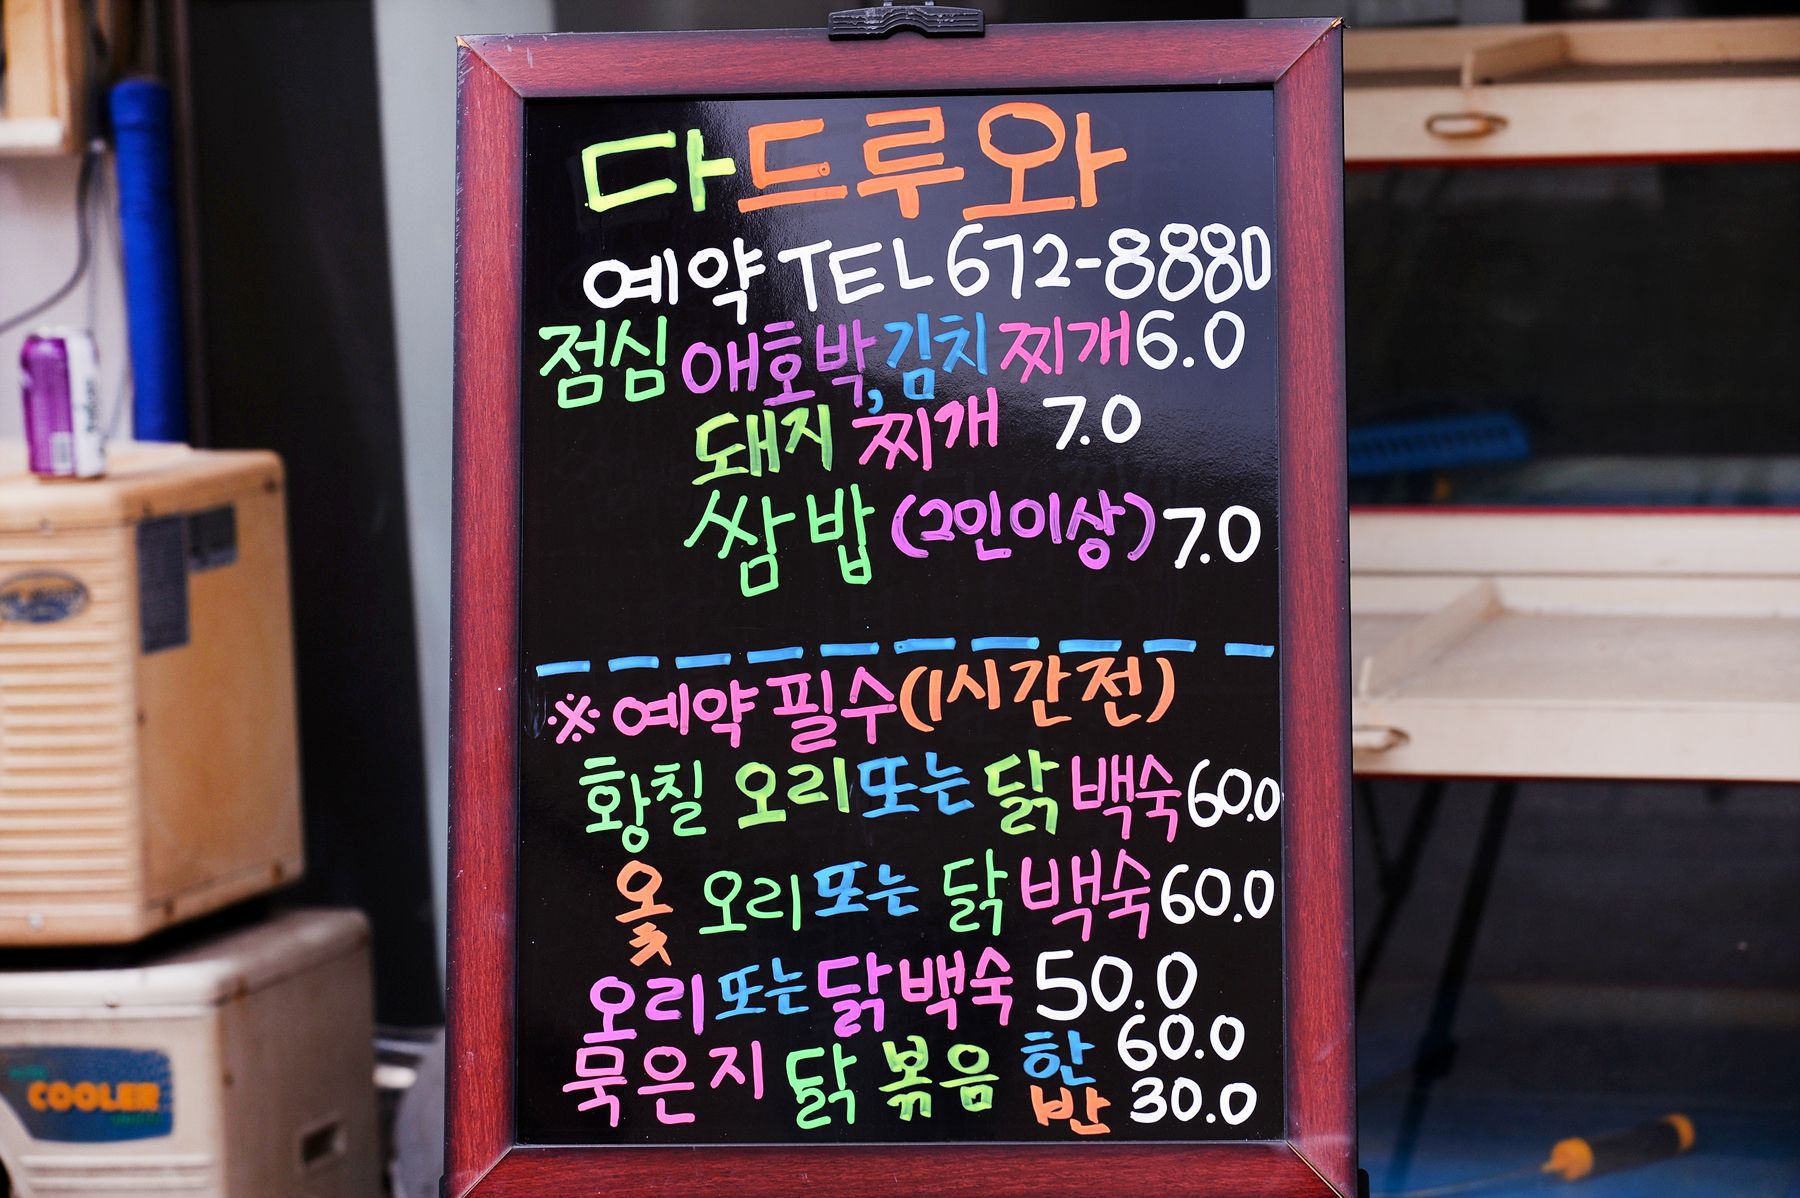 다드루와
예약 TEL 672-8880
점심 애호박,김치 찌개 6.0
돼지 찌개 7.0
쌈밥 (2인이상) 7.0
※예약필수(1시간전)
황칠 오리또는 닭백숙 60.0
옻 오리또는 닭백숙 60.0
오리또는닭백숙 50.0
묵은지 닭 볶음 한 60.0
반 30.0
COOLER